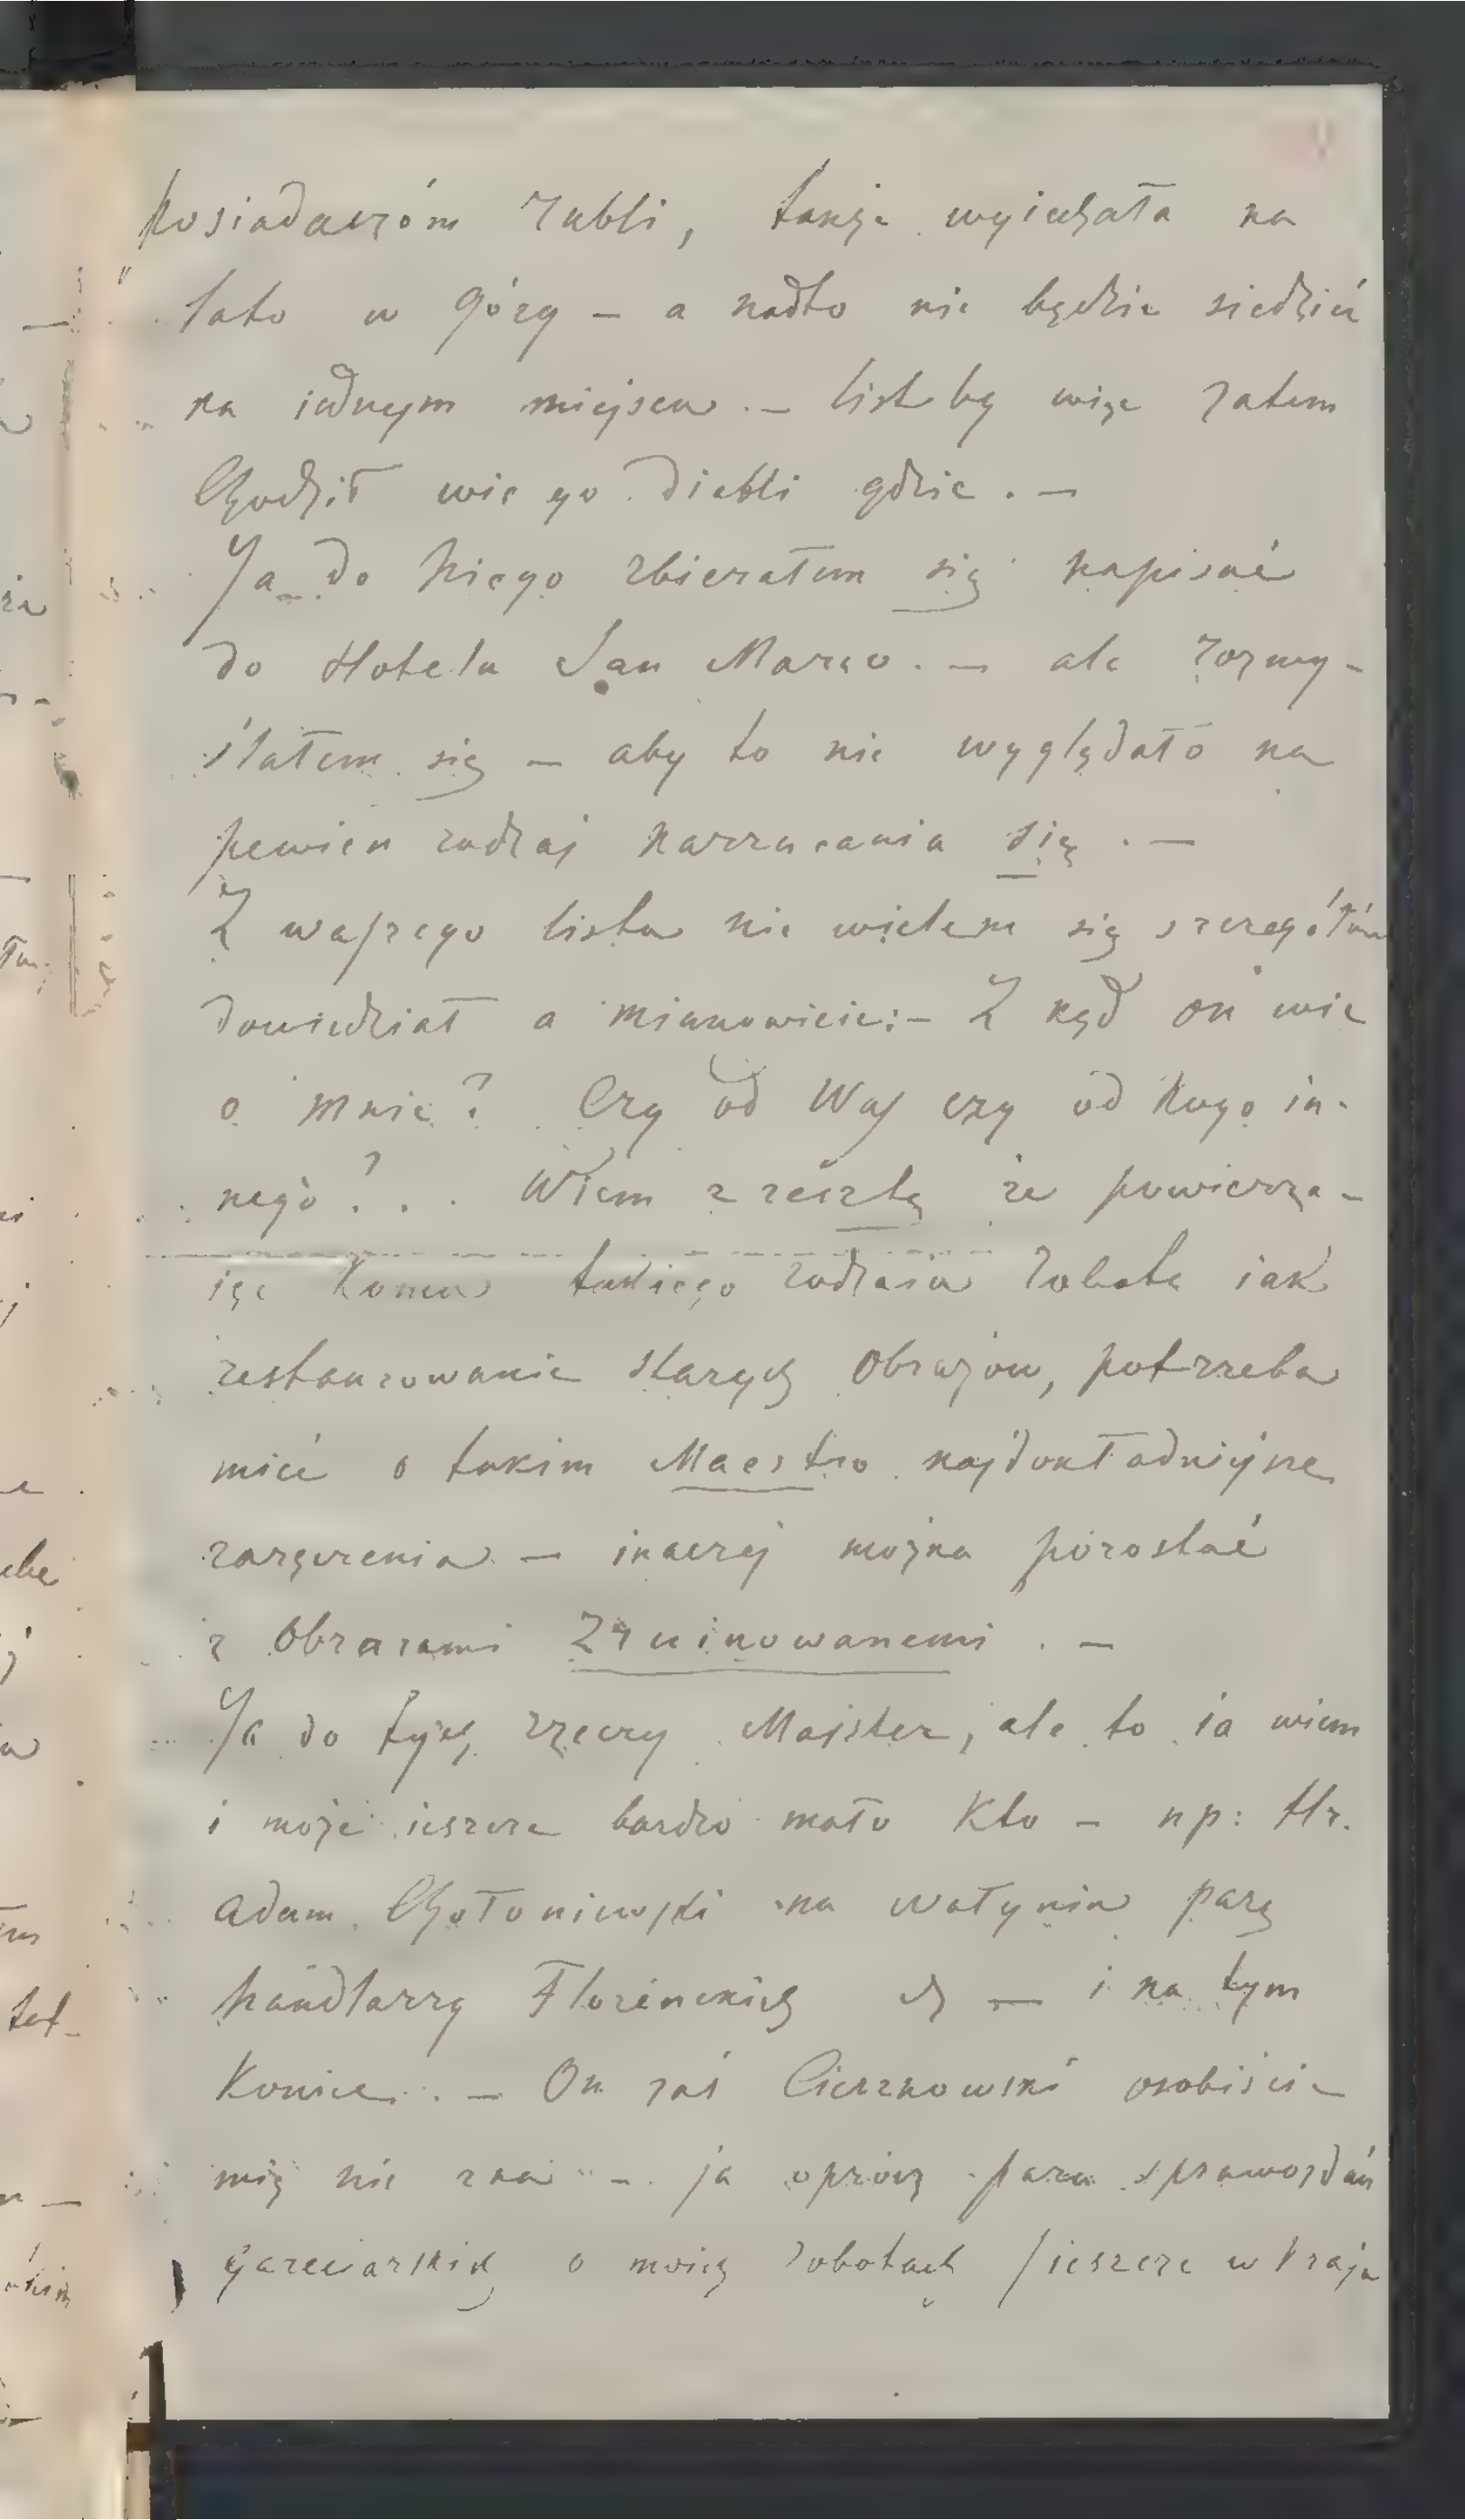 posiadaczóm rubli, także wyiechała na
lato w Góry – a nadto nie będzie siedzieć
na iednym miejscu. – list by więc zatem
Chodził wie go diabli gdzie. –
Ja do Niego zbierałem się napisać
do Hotelu San Marco. – ale rozmy-
ślałem się – aby to nie wyglądało na
pewien rodzaj narzucania się. –
Z waszego listu nie wielem się szczegółów
dowiedział a mianowicie: – Z kąd on wie
o mnie? Czy od Was czy od kogo in-
nego?.. Wiem zresztą że powierza-
iąc komu takiego rodzaiu robotę iak
restaurowanie starych Obrazów, potrzeba
mieć o takim Maestro najdokładniejsze
zaręczenia – inaczej można pozostać
z Obrazami Zruinowanemi. –
Ja do tych rzeczy Majster, ale to ia wiem
i może ieszcze bardzo mało Kto – np: Hr.
Adam Chołoniewski na Wołyniu parę
handlarzy Florenckich – i na tym
Koniec. – On zaś Cieszkowski osobiście
mię nie zna – ja oprócz paru sprawozdań
gazeciarskich o moich robotach /ieszcze w kraju